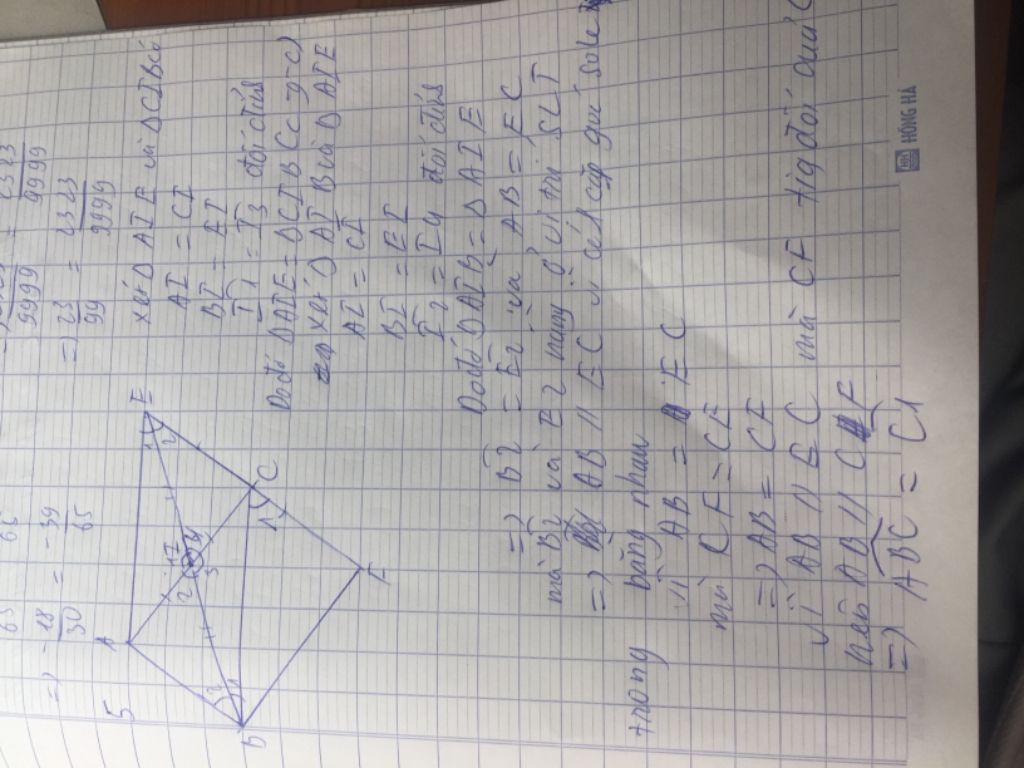 => -18/30 = -39/65
=> 23/99 = 2323/9999
5
A
E
B
C
F
I
xét Δ AIE và Δ CIB có
AI = CI
BI = EI
I1 = I3 đối đỉnh
Do đó Δ AIE = Δ CIB (c-g-c)
xét Δ AIB và Δ
AI = CI
BI = EI
I2 = I4 đối đỉnh
Do đó Δ AIB = Δ AIE
=> B2 = E2 và AB = EC
mà B2 và E2 nằm ở vị trí SLT
=> AB // EC vì có 1 cặp góc sole
trong bằng nhau
vì AB = EC
mà CF = CE
=> AB = CF
vì AB // EC mà CF tia đối của
nên AB // CF
=> ABC = C1
HỒNG HÀ